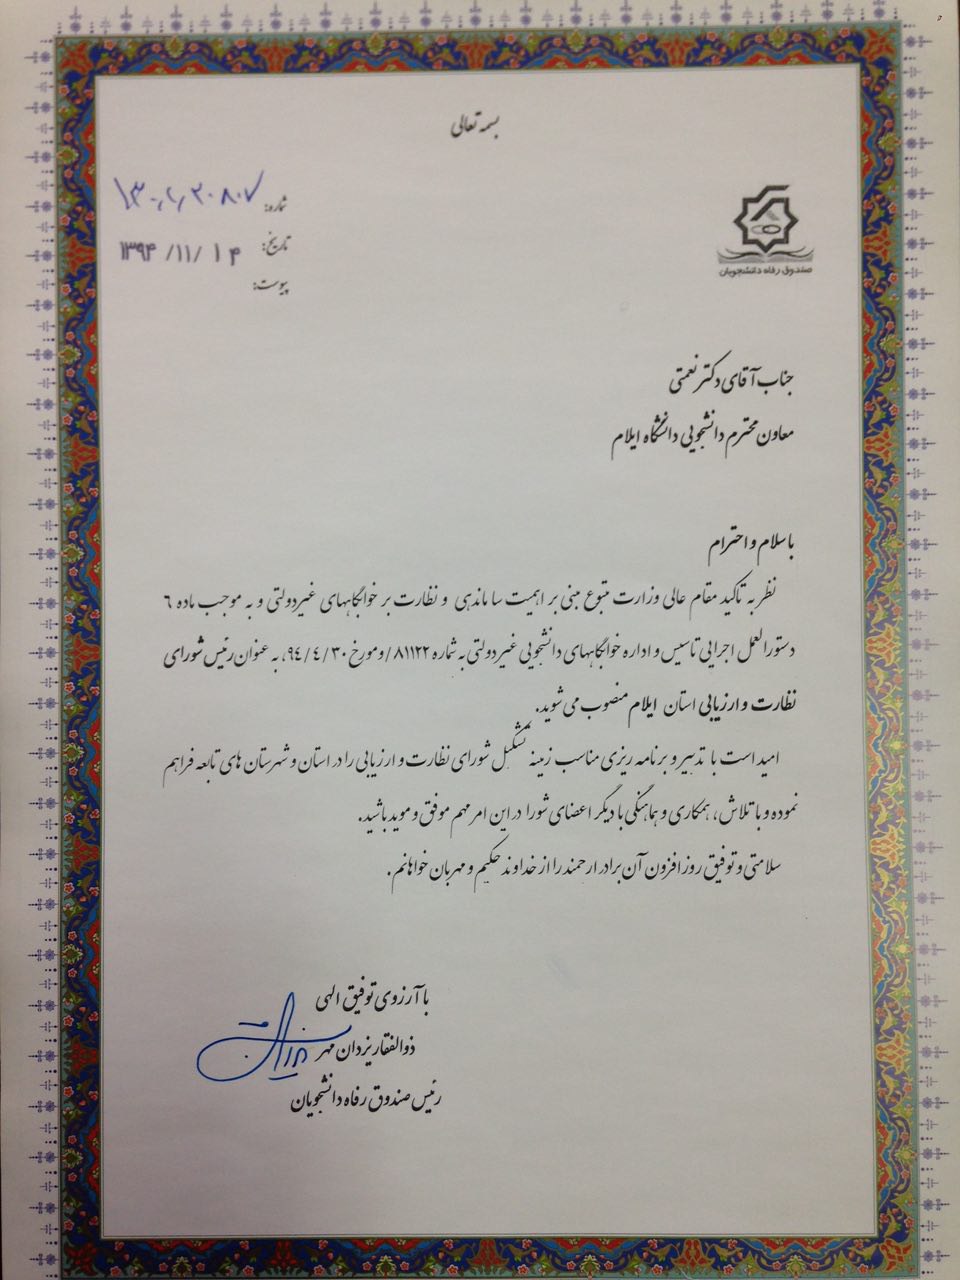 بسمه تعالی
شماره:
تاریخ: ۱۳۹۴/۱۱/۱۴
پیوست:
صندوق رفاه دانشجویان
جناب آقای دکتر نعمتی
معاون محترم دانشجویی دانشگاه ایلام
با سلام و احترام
نظر به تاکید مقام عالی وزارت متبوع مبنی بر اهمیت ساماندهی و نظارت بر خوابگاههای غیردولتی و به موجب ماده ۶
دستورالعمل اجرایی تاسیس و اداره خوابگاههای دانشجویی غیردولتی به شماره ۸۱۱۲۲/و مورخ ۹۴/۴/۳۰، به عنوان رئیس شورای
نظارت و ارزیابی استان ایلام منصوب می شوید.
امید است با تدبیر و برنامه ریزی مناسب زمینه تشکیل شورای نظارت و ارزیابی را در استان و شهرستان های تابعه فراهم
نموده و با تلاش، همکاری و هماهنگی با دیگر اعضای شورا در این امر مهم موفق و موید باشید.
سلامتی و توفیق روز افزون آن برادر ارجمند را از خداوند حکیم و مهربان خواهانم.
با آرزوی توفیق الهی
ذوالفقار یزدان مهر
رئیس صندوق رفاه دانشجویان